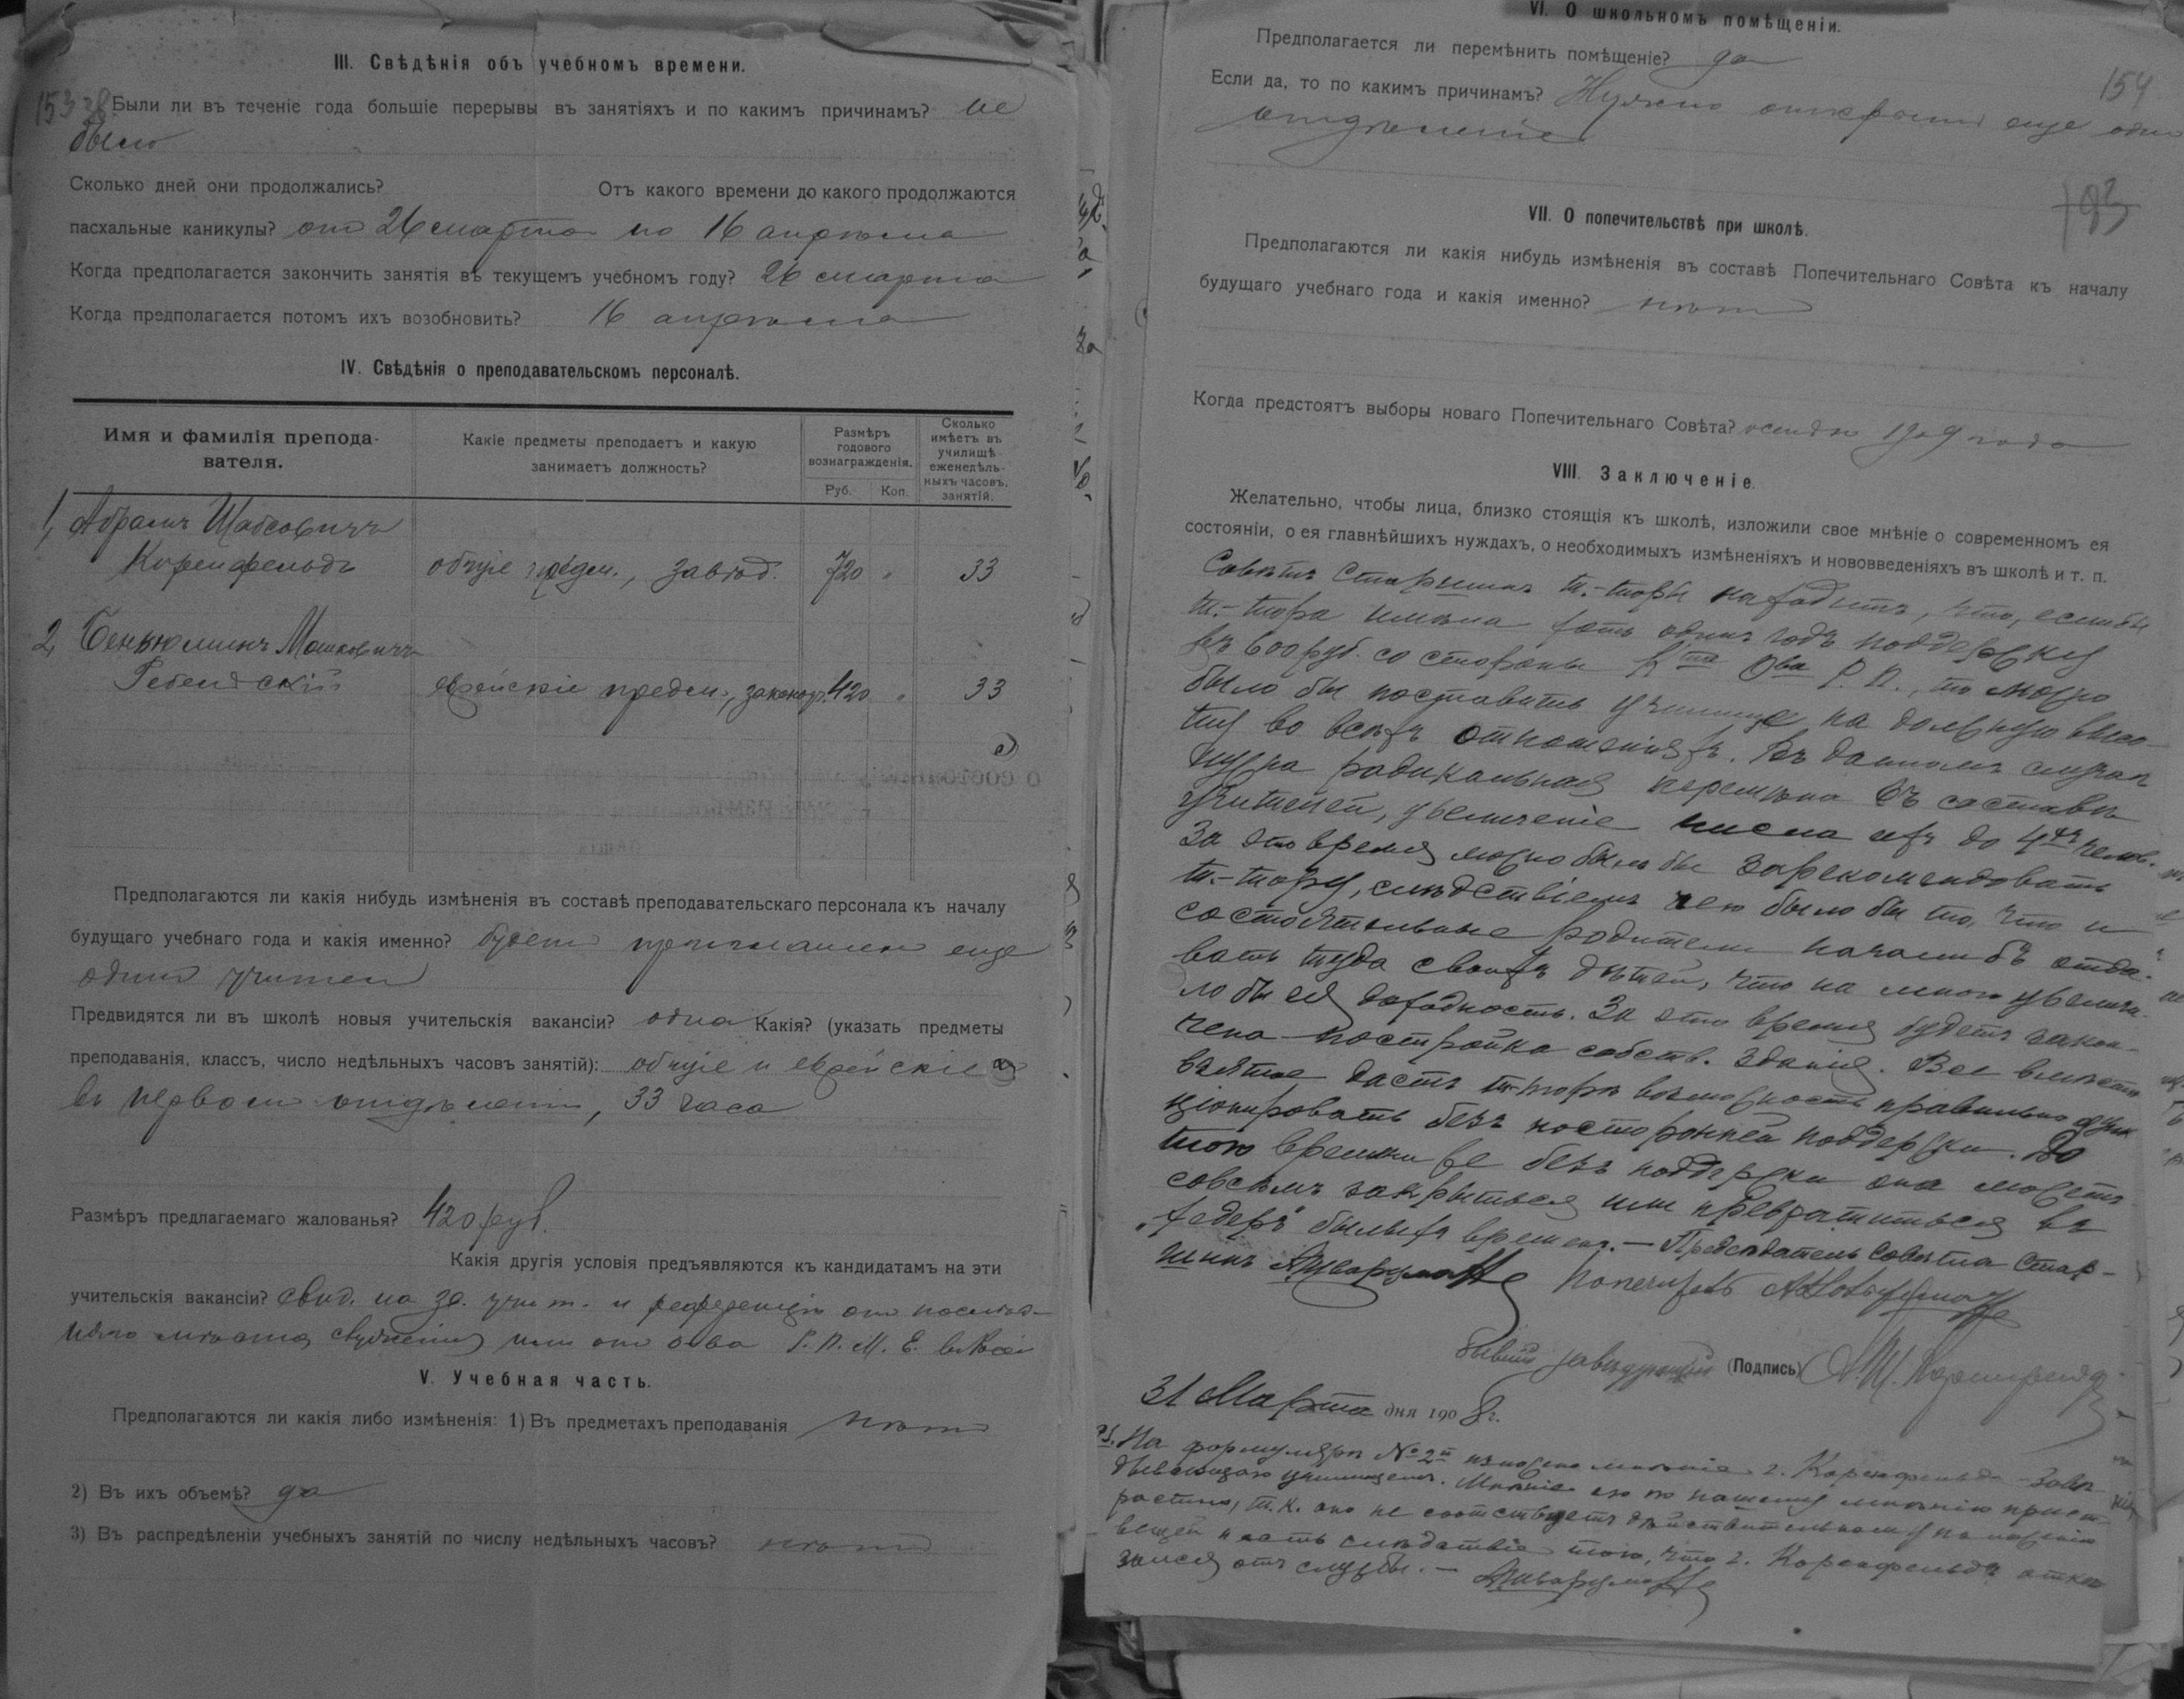 III. Свѣдѣнія объ учебномъ времени.
153
Были ли въ теченіе года большіе перерывы въ занятіяхъ и по какимъ причинамъ? не
было
Сколько дней они продолжались? Отъ какого времени до какого продолжаются
пасхальные каникулы? от 26 марта по 16 апрѣля
Когда предполагается закончить занятія въ текущемъ учебномъ году? 26 марта
Когда предполагается потомъ ихъ возобновить? 16 апрѣля
IV. Свѣдѣнія о преподавательскомъ персоналѣ.
Имя и фамилія препода-
вателя.
Какіе предметы преподаетъ и какую
занимаетъ должность?
Размѣръ
годового
вознагражденія.
Руб. Коп.
Сколько
имѣетъ въ
училищѣ
еженедѣль-
ныхъ часовъ.
занятій.
1, Абрамъ Шабсовичъ
Коренфельдъ общіе предм., завѣд. 720 „ 33
2, Беньюминъ Мошковичъ
еврейскіе предм., законоуч. 420 „ 33
Предполагаются ли какія нибудь измѣненія въ составѣ преподавательскаго персонала къ началу
будущаго учебнаго года и какія именно? будет приглашен еще
один учител
Предвидятся ли въ школѣ новыя учительскія вакансіи? одна Какія? (указать предметы
преподаванія, классъ, число недѣльныхъ часовъ занятій): общіе и еврейскіе
въ первом отдѣленіи, 33 часа
Размѣръ предлагаемаго жалованья? 420 руб.
Какія другія условія предъявляются къ кандидатамъ на эти
учительскія вакансіи? свид. на зв. учит. и референціи от послѣд-
няго мѣста служенія или от о-ва Р. П. М. Е. в Россіи
V. Учебная часть.
Предполагаются ли какія либо измѣненія: 1) Въ предметахъ преподаванія нѣт
2) Въ ихъ объемѣ? да
3) Въ распредѣленіи учебныхъ занятій по числу недѣльныхъ часовъ? нѣт
VI. О школьномъ помѣщеніи.
Предполагается ли перемѣнить помѣщеніе? да
154
Если да, то по какимъ причинамъ? Нужно открыть еще одно
отдѣленіе
193
VII. О попечительствѣ при школѣ.
Предполагаются ли какія нибудь измѣненія въ составѣ Попечительнаго Совѣта къ началу
будущаго учебнаго года и какія именно? нѣт
Когда предстоятъ выборы новаго Попечительнаго Совѣта? осенью 1909 года
VIII. Заключеніе.
Желательно, чтобы лица, близко стоящія къ школѣ, изложили свое мнѣніе о современномъ ея
состояніи, о ея главнѣйшихъ нуждахъ, о необходимыхъ измѣненіяхъ и нововведеніяхъ въ школѣ и т. п.
Совѣтъ Старшинъ т.-торы находитъ, что, если бы
т.-тора имѣла хоть одинъ годъ поддержку
въ 600 руб. со стороны О-ва Р. П., то можно
было бы поставить училище на должную высо-
ту во всѣхъ отношеніяхъ. Въ данномъ случаѣ
нужна радикальная перемѣна въ составѣ
учителей, увеличеніе числа ихъ до 4-хъ челов.
За это время можно было бы зарекомендовать
т.-тору, слѣдствіемъ чего было бы то, что и
состоятельные родители начали бъ отда-
вать туда своихъ дѣтей, что на много увеличи-
ло бы ея доходность. За это время будетъ закон-
чена постройка собств. зданія. Все вмѣстѣ
взятое дастъ т-торѣ возможность правильно функ
ціонировать безъ посторонней поддержки. До
того времени же безъ поддержки она можетъ
совсѣмъ закрыться или превратиться въ
„хедеръ“ былыхъ временъ. — Предсѣдатель Совѣта Стар-
шинъ
бывшій завѣдующій (Подпись) А. Ш. Коренфельд
31 Марта дня 1908 г.
P.S. На формулярѣ № 2-й изложено мнѣніе г. Коренфельда — завѣ-
дывающаго училищемъ. Мнѣніе его по нашему мнѣнію прист-
растно, т. к. оно не соотвѣтствуетъ дѣйствительному положенію
вещей и есть слѣдствіе того, что г. Коренфельдъ отка-
зался отъ службы. —